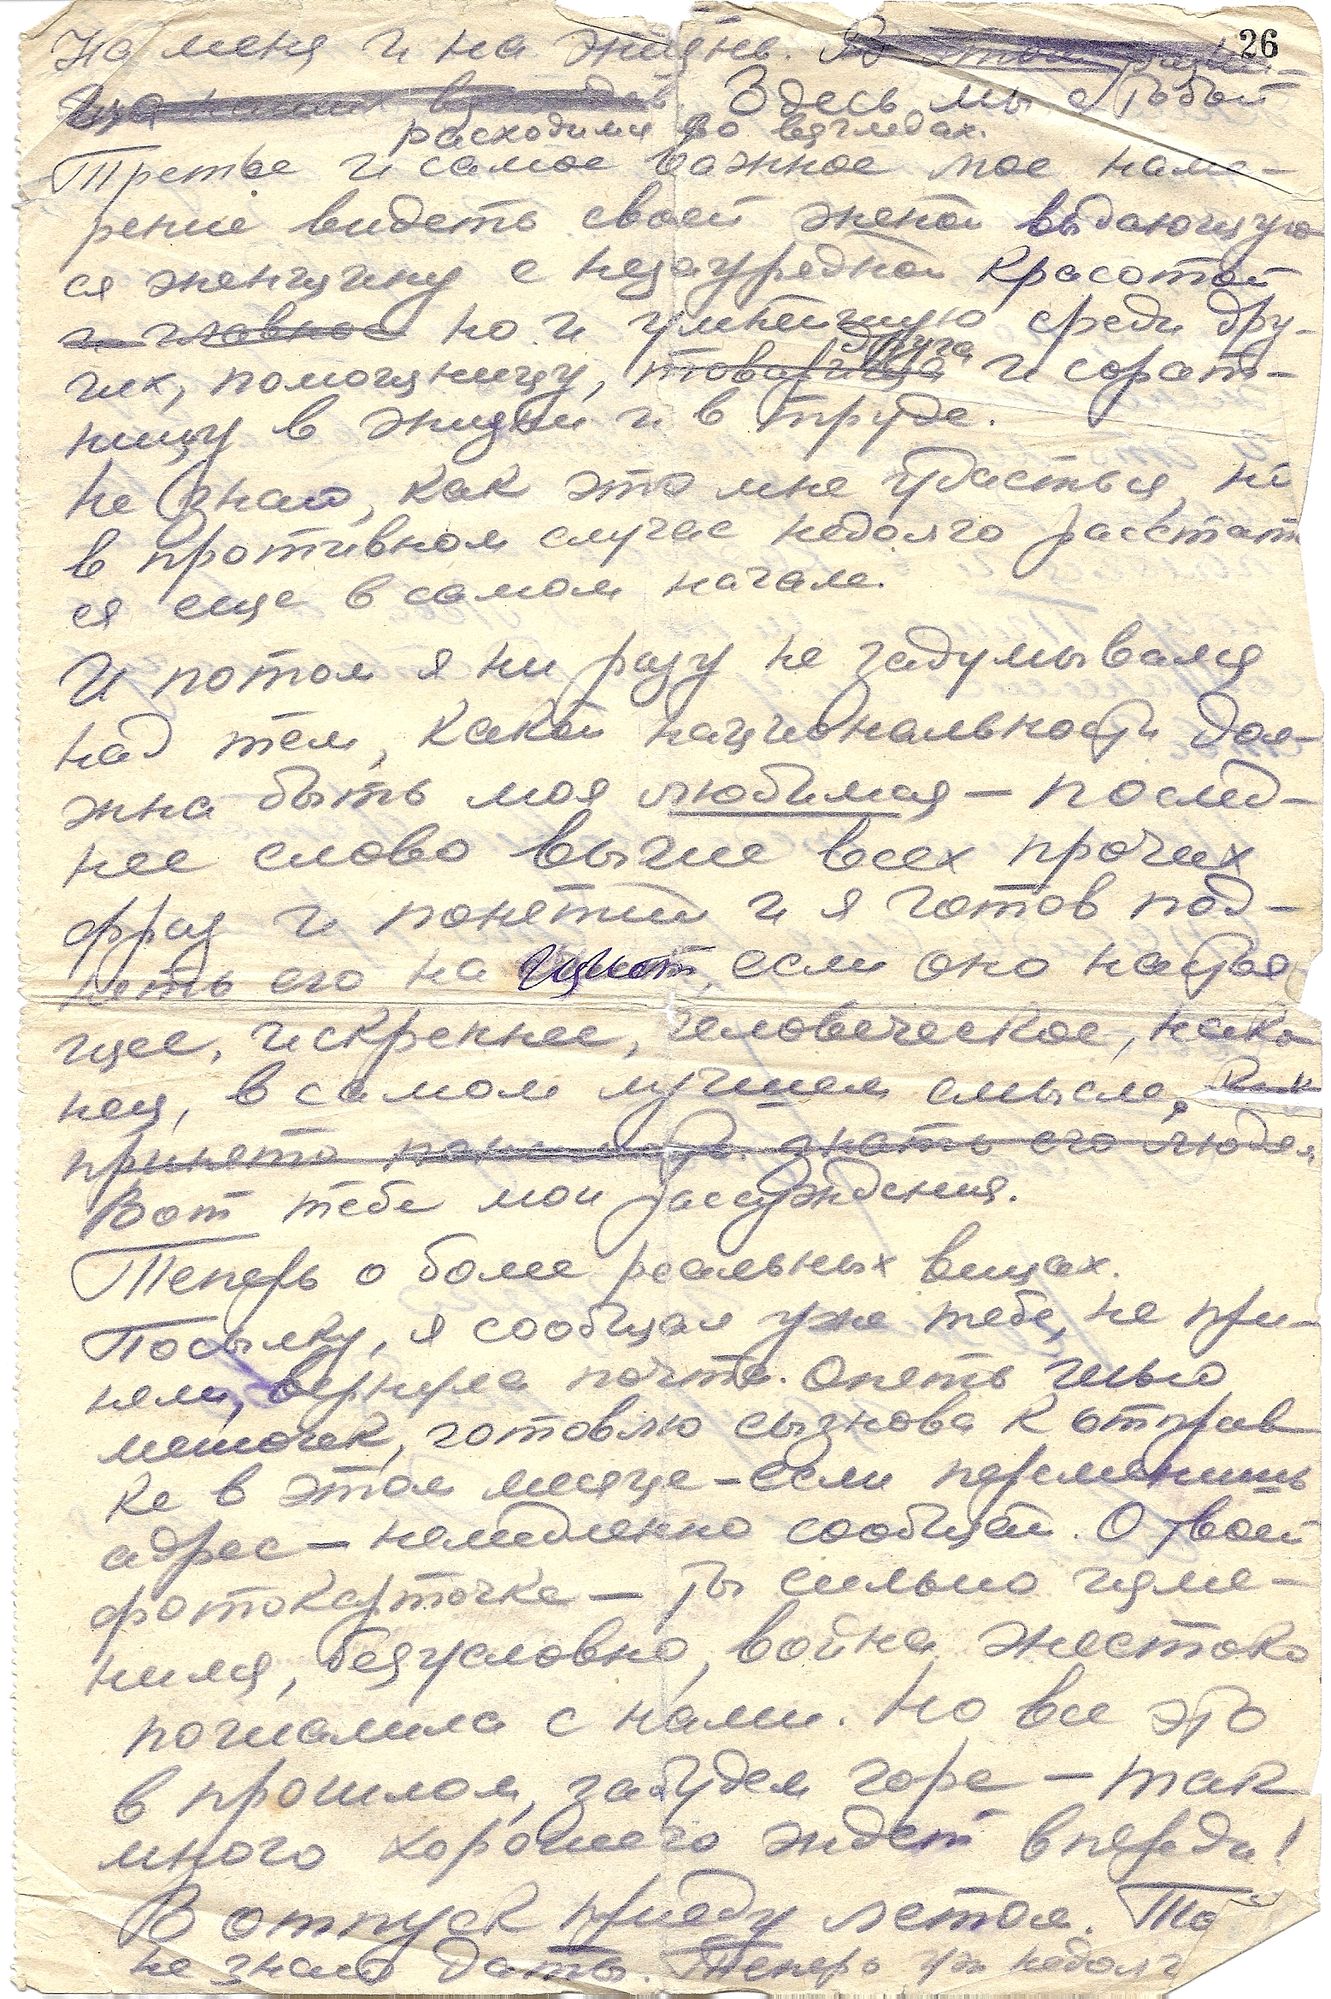 26
на меня и на жизнь. В этом
взглядов. Здесь мы с тобой
расходимся во взглядах.
Третье и самое важное мое наме-
рение видеть своей женой выдающую
ся женщину с незаурядной красотой
и главное но и умнейшую среди дру-
гих, помощницу, товарища друга и сорат-
ницу в жизни и в труде.
Не знаю, как это мне удасться, но
в противном случае недолго расстать
ся еще в самом начале.
И потом я ни разу не задумывался
над тем, какой национальности дол-
жна быть моя любимая – послед-
нее слово выше всех прочих
фраз и понятий и я готов под-
нять его на щит, если оно настоя
щее, искреннее, человеческое, нако
нец, в самом лучшем смысле, как
принято знать его людям
Вот тебе мои рассуждения.
Теперь о более реальных вещах.
Посылку, я сообщал уже тебе, не при-
няли, вернула почта. Опять шью
мешочек, готовлю сызнова к отправ
ке в этом месяце – если переменишь
адрес – немедленно сообщай. О твоей
фотокарточке – ты сильно изме-
нился, безусловно, война жестоко
пошалила с нами. Но все это
в прошлом, забудем горе – так
много хорошего ждет впереди!
В отпуск приеду летом. То
не знаю даты. Теперь уж недолг